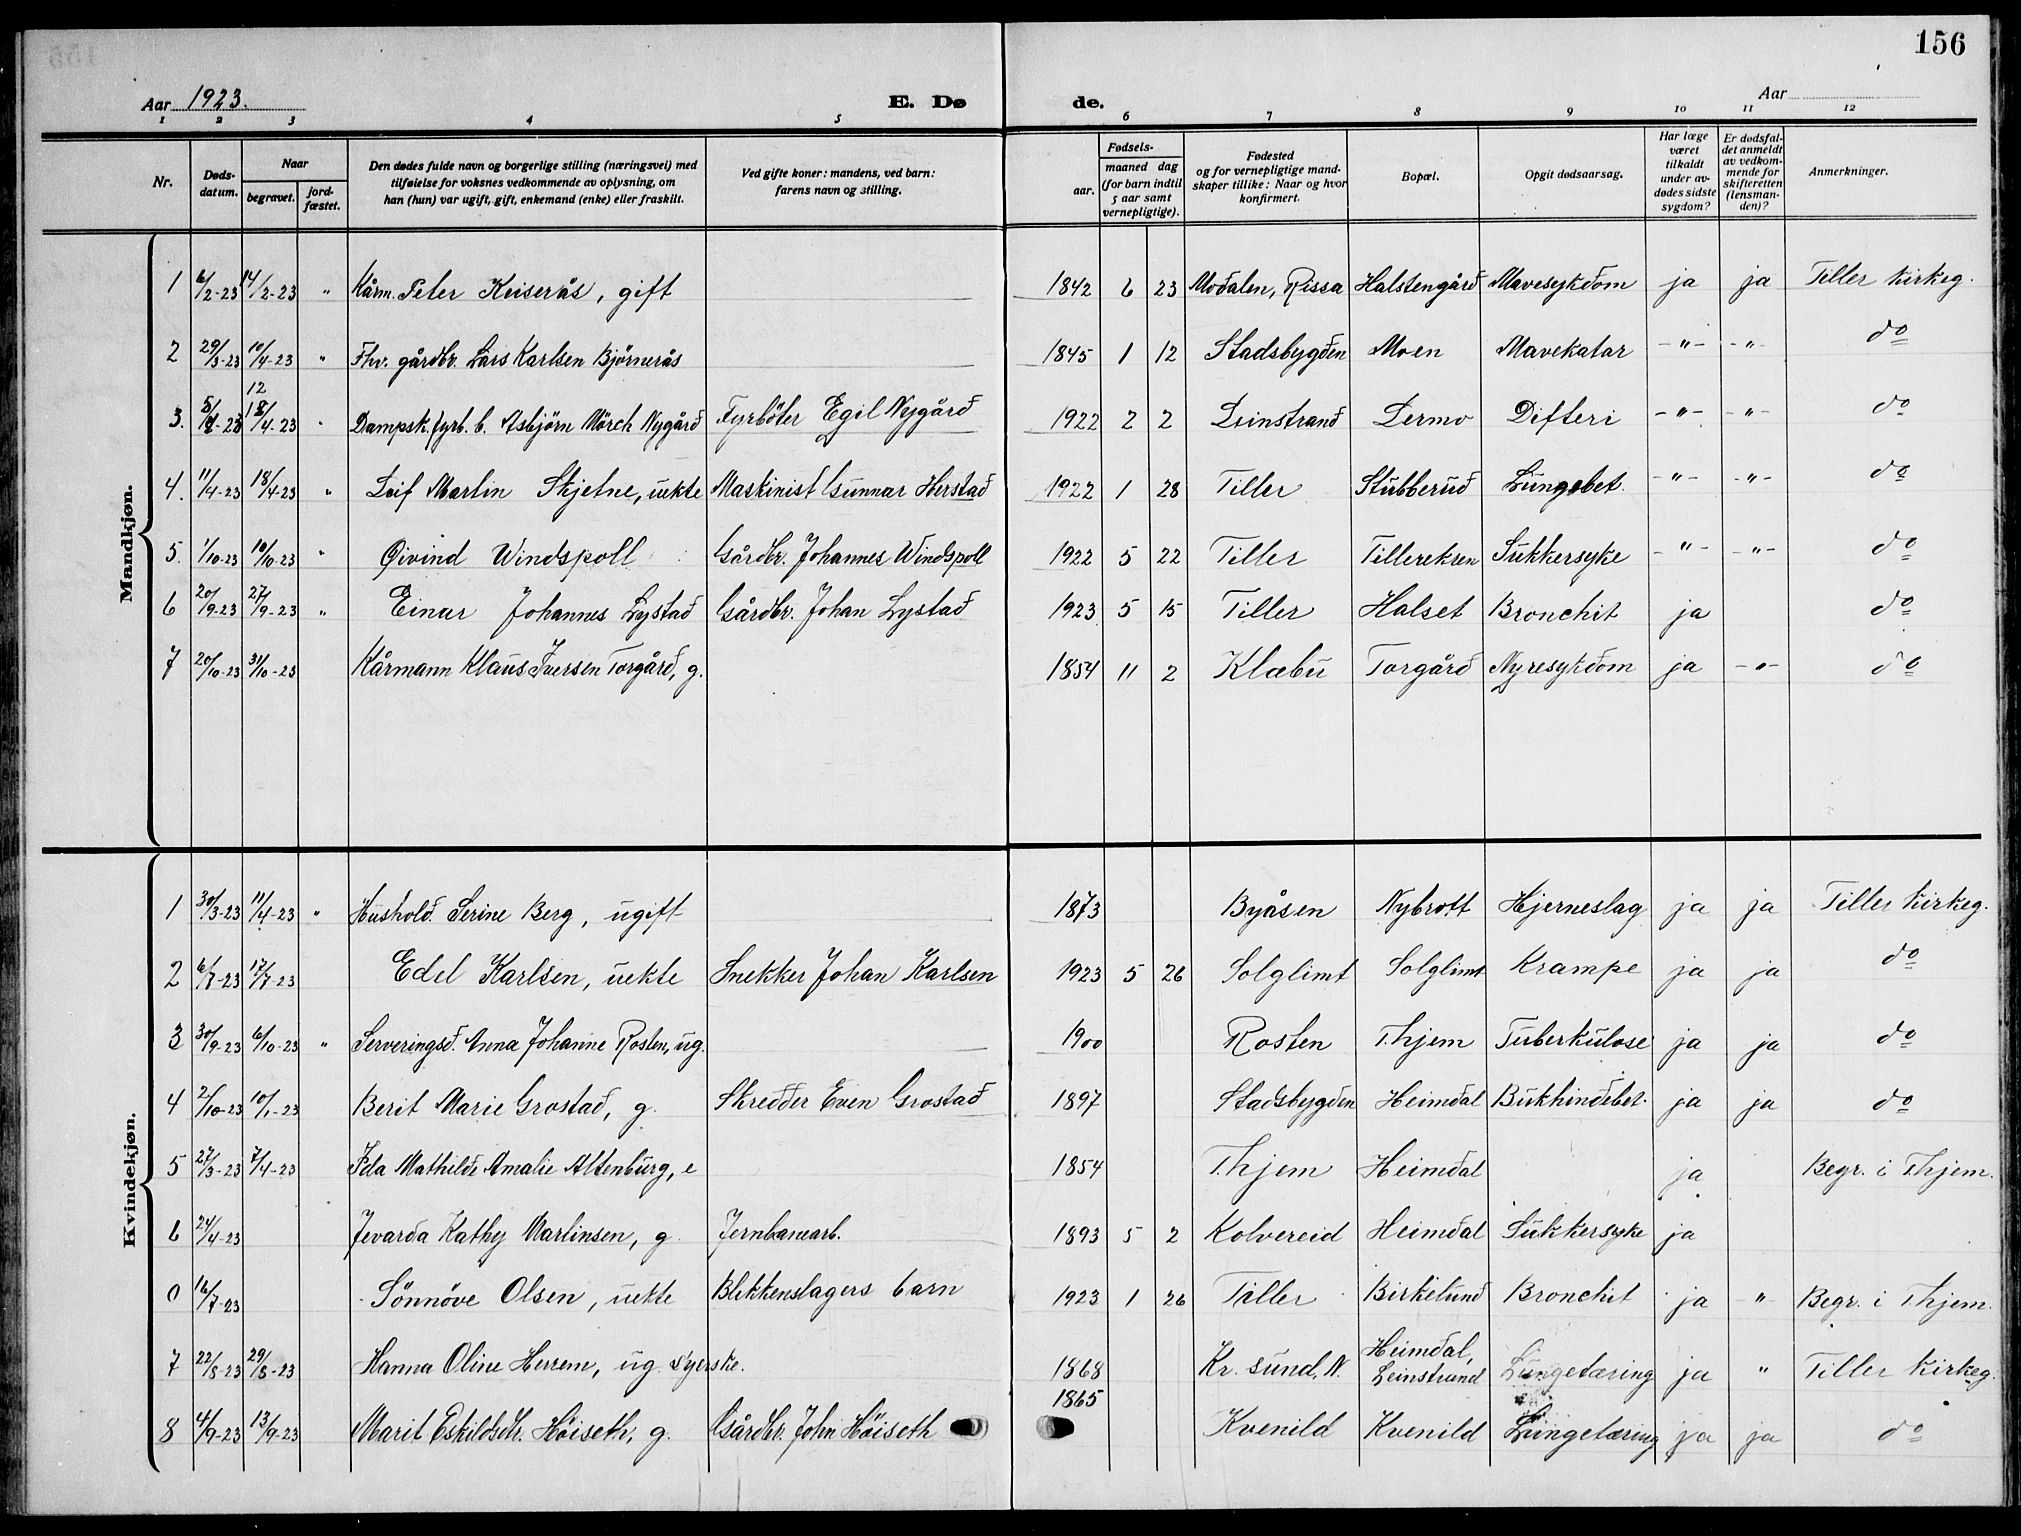 156
Aar 1923. E. Dø de. Aar
1 2 3 4 5 6 7 8 9 10 11 12
Nr. Døds-datum. Naar begravet. jord-fæstet. Den dødes fulde navn og borgerlige stilling (næringsvei) med tilføielse for voksnes vedkommende av oplysning, om han (hun) var ugift, gift, enkemand (enke) eller fraskilt. Ved gifte koner: mandens, ved barn: farens navn og stilling. Fødsels- aar. maaned dag (for barn indtil 5 aar samt vernepligtige). Fødested og for vernepligtige mand-skaper tillike: Naar og hvor konfirmert. Bopæl. Opgit dødsaarsag. Har læge været tilkaldt under av-dødes sidste sygdom? Er dødsfal-det anmeldt av vedkom-mende for skifteretten (lensman-den)? Anmerkninger.
Mandkjøn.
1 6/2-23 14/2-23 " Kårm. Peter Keiserås, gift 1842 6 23 Modalen, Rissa Halstengård Mavesykdom ja ja Tiller kirkeg.
2 29/3-23 10/4-23 " Fhv. gårdbr. Lars Karlsen Bjørnerås 1845 1 12 Stadsbygden Moen Mavekatar -"- -"- do
3. 5/4-23 12 /4-23 " Dampsk. fyrb. b. Asbjørn Mörch Nygård Fyrböter Egil Nygård 1922 2 2 Leinstrand Lermo Difteri -"- -"- do
4. 11/4-23 18/4-23 " Leif Martin Skjetne, uekte Maskinist Gunnar Herstad 1922 1 28 Tiller Stubberud Lungebet. -"- -"- do
5. 1/10-23 10/10-23 " Øivind Windspoll Gårdbr. Johannes Windspoll 1922 5 22 Tiller Tillereksen Sukkersyke -"- -"- do
6 20/9-23 27/9-23 " Einar Johannes Lystad Gårdbr. Johan Lystad 1923 5 15 Tiller Halset Bronchit ja do
7 20/10-23 31/10-23 Kårmann Klaus Iversen Torgård, g. 1854 11 2 Klæbu Torgård Nyresykdom ja -"- do
Kvindekjøn.
1 30/3-23 11/4-23 " Hushold. Serine Berg, ugift 1873 Byåsen Nybrott Hjerneslag ja ja Tiller kirkeg.
2 6/7-23 17/7-23 Edel Karlsen, uekte Snekker Johan Karlsen 1923 5 26 Solglimt Solglimt Krampe ja ja do
3 30/9-23 6/10-23 " Serveringsd. Anna Johanne Rosten, ug. 1900 Rosten Thjem Tuberkulose ja ja do
4 2/10-23 10/1-23 Berit Marie Grostad, g. Skredder Even Grostad 1897 Stadsbygden Heimdal Bukhindebet. ja ja do
5 27/3-23 7/4-23 Ida Mathilde Amalie Altenburg, e 1854 Thjem Heimdal ja Begr. i Thjem.
6 24/4-23 Jevarda Kathy Martinsen, g. Jernbanearb. 1893 5 2 Kolvereid Heimdal Sukkersyke ja
0 16/7-23 Sönnöve Olsen, uekte Blekkenslagers barn 1923 1 26 Tiller Birkelund Bronchit ja " Begr. i Thjem.
7 22/8-23 29/8-23 Hanna Oline Herrem, ug. syerske. 1868 Kr. sund, N. Heimdal, Leinstrand Lungetæring ja " Tiller kirkeg.
8 4/9-23 13/9-23 Marit Eskildsdtr. Höiseth, g. Gårdbr. John Höiseth 1865 Kvenild Kvenild Lungetæring ja ja do